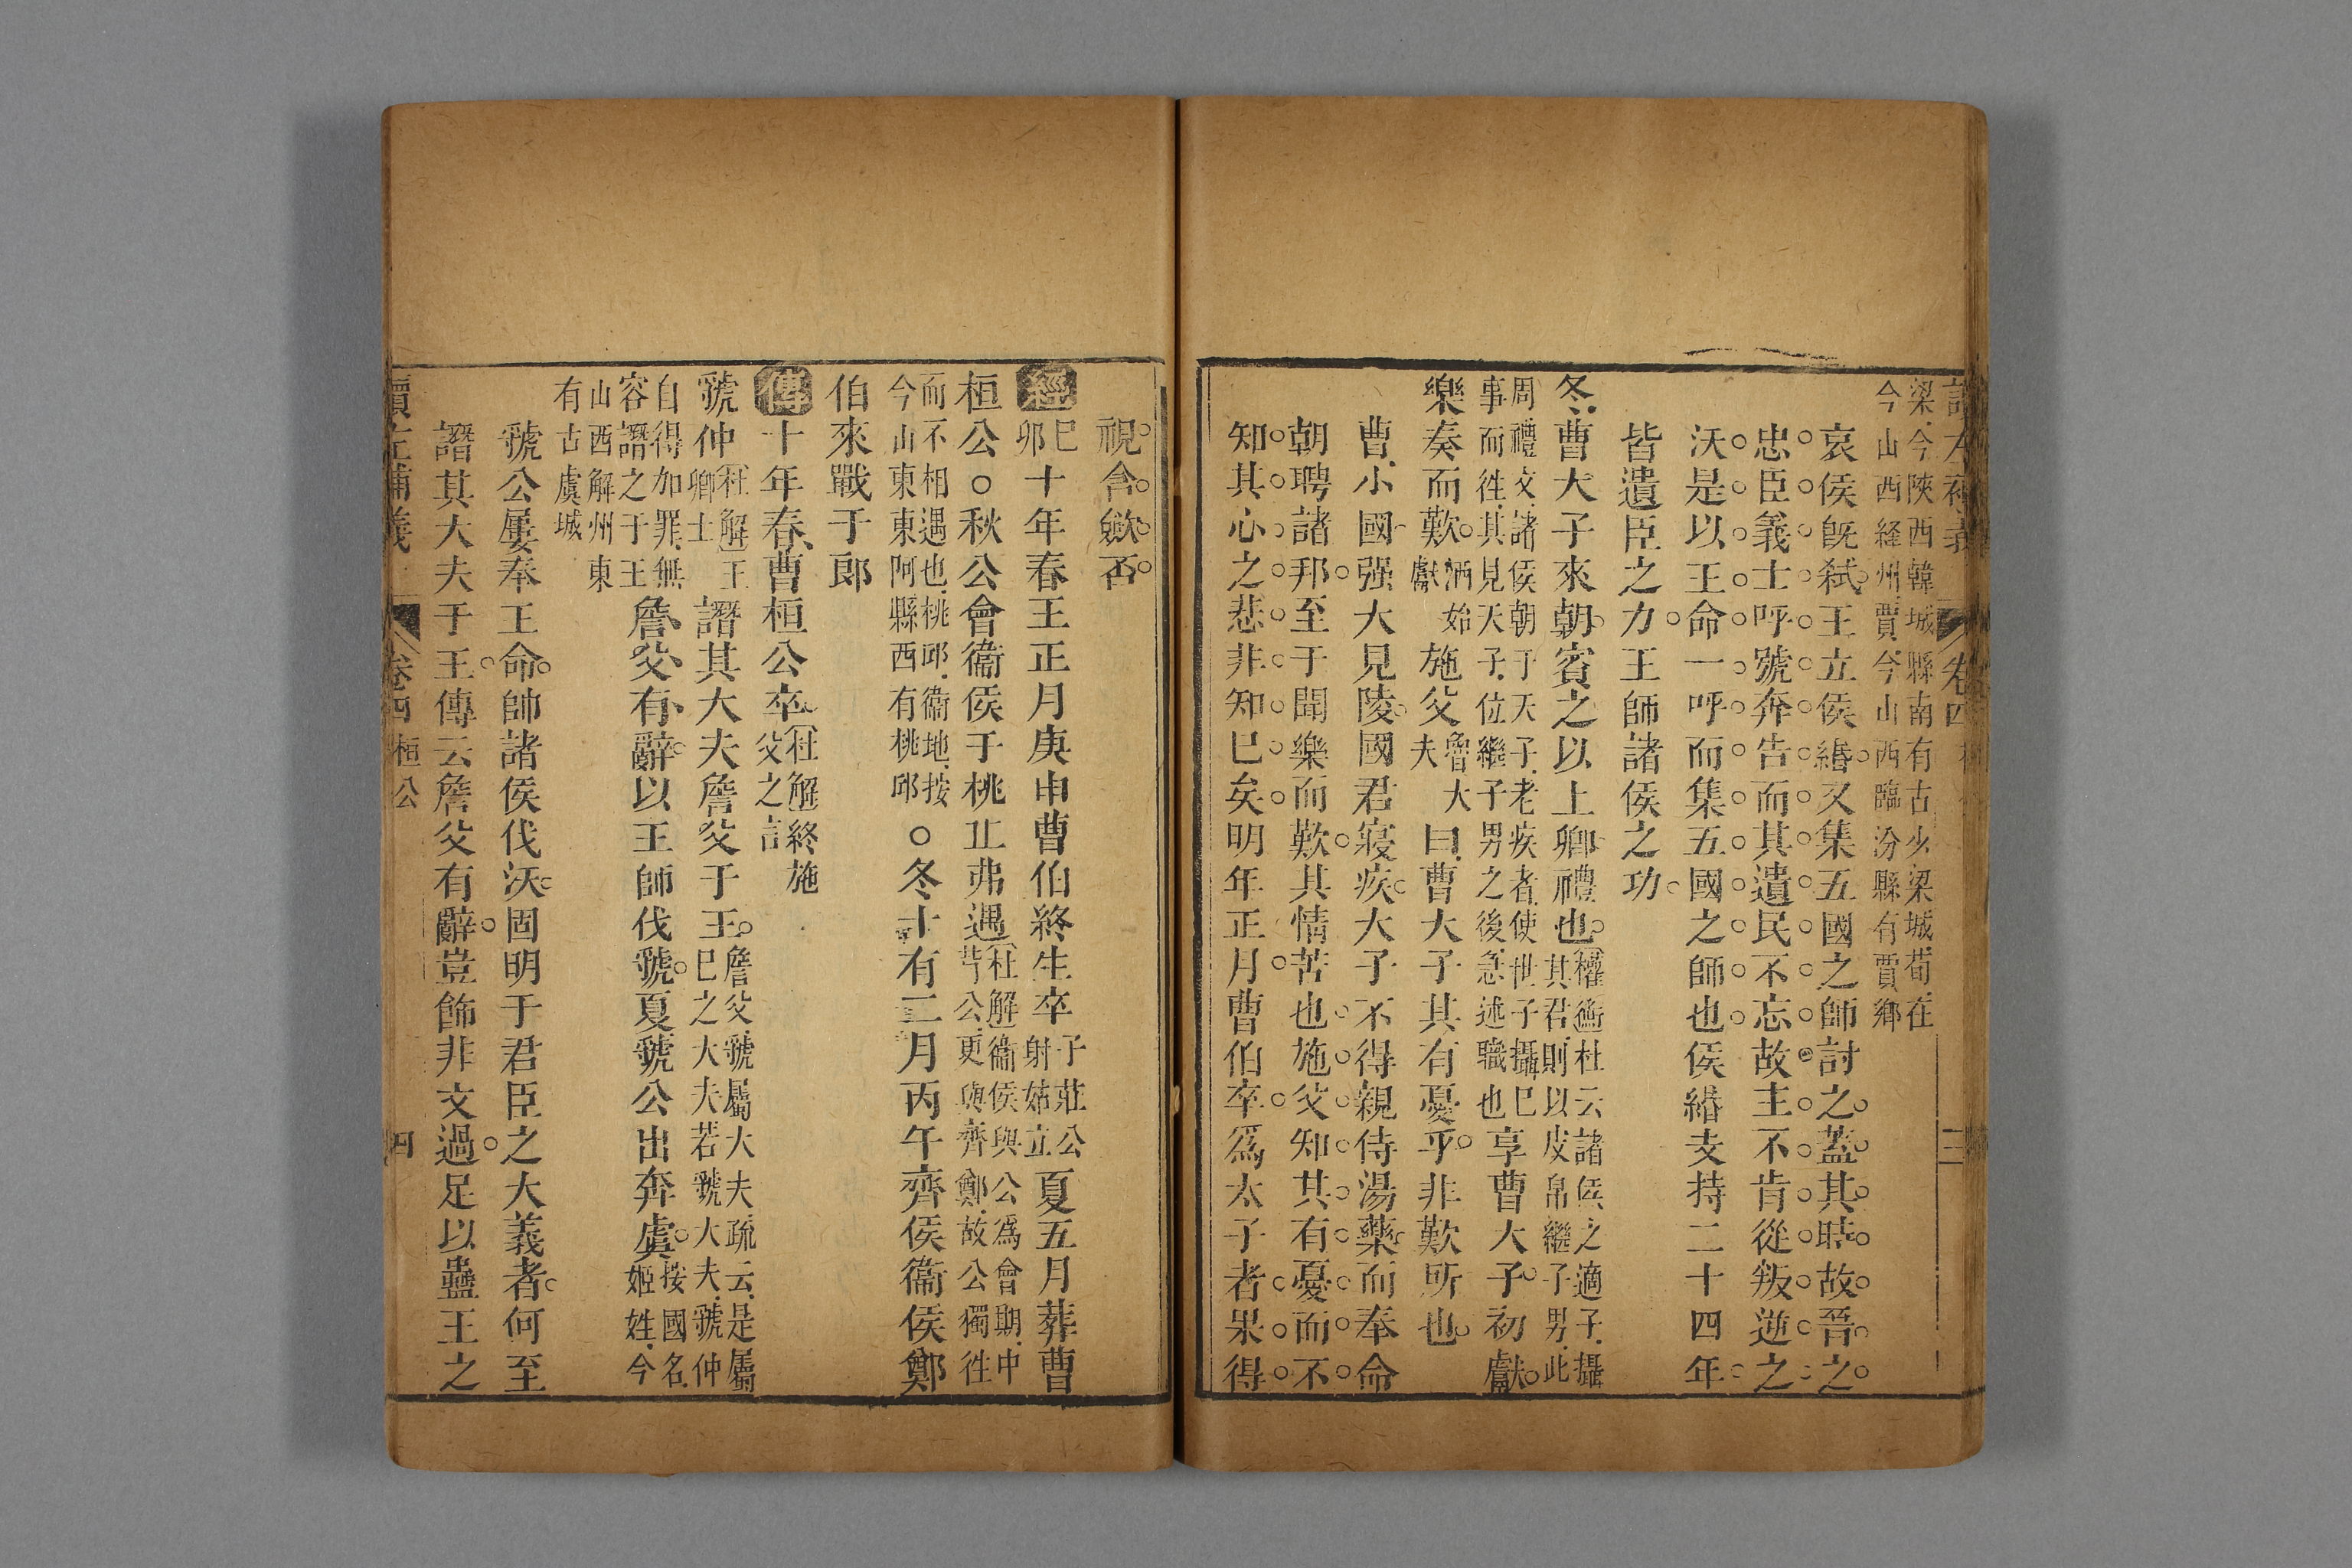 梁今陝西韓城縣南有古少梁城荀在
今山西絳州賈今山西臨汾縣有賈鄉
哀侯旣弑王立侯緡又集五國之師討之蓋其時故晉之
忠臣義士呼號奔告而其遺民不忘故主不肯從叛逆之
沃是以王命一呼而集五國之師也侯緡支持二十四年
皆遺臣之力王師諸侯之功
冬曹大子來朝賓之以上卿禮也權衡杜云諸侯之適子攝其君則以皮帛繼子男此
周禮文諸侯朝于天子老疾者使世子攝已
事而往其見天子位繼子男之後急述職也享曹大子初獻
樂奏而歎酒始獻施父魯大夫曰曹大子其有憂乎非歎所也
曹小國强大見陵國君寢疾大子不得親侍湯藥而奉命
朝聘諸邦至于聞樂而歎其情苦也施父知其有憂而不
知其心之悲非知已矣明年正月曹伯卒爲太子者果得
視含斂否
經己卯十年春王正月庚申曹伯終生卒子莊公射姑立夏五月葬曹
桓公○秋公會衞侯于桃丘弗遇杜解衞侯與公爲會期中背公更與齊鄭故公獨往
而不相遇也桃邱衞地按
今山東東阿縣西有桃邱○冬十有二月丙午齊侯衞侯鄭
伯來戰于郎
傳十年春曹桓公卒杜解終施父之言
虢仲杜解王卿士譖其大夫詹父于王詹父虢屬大夫疏云是屬已之大夫若虢大夫虢仲
自得加罪無
容譖之于王詹父有辭以王師伐虢夏虢公出奔虞按國名姬姓今
山西解州東
有古虞城
虢公屢奉王命帥諸侯伐沃固明于君臣之大義者何至
譖其大夫于王傳云詹父有辭豈飾非文過足以蠱王之
讀左補義 卷四 桓公 四